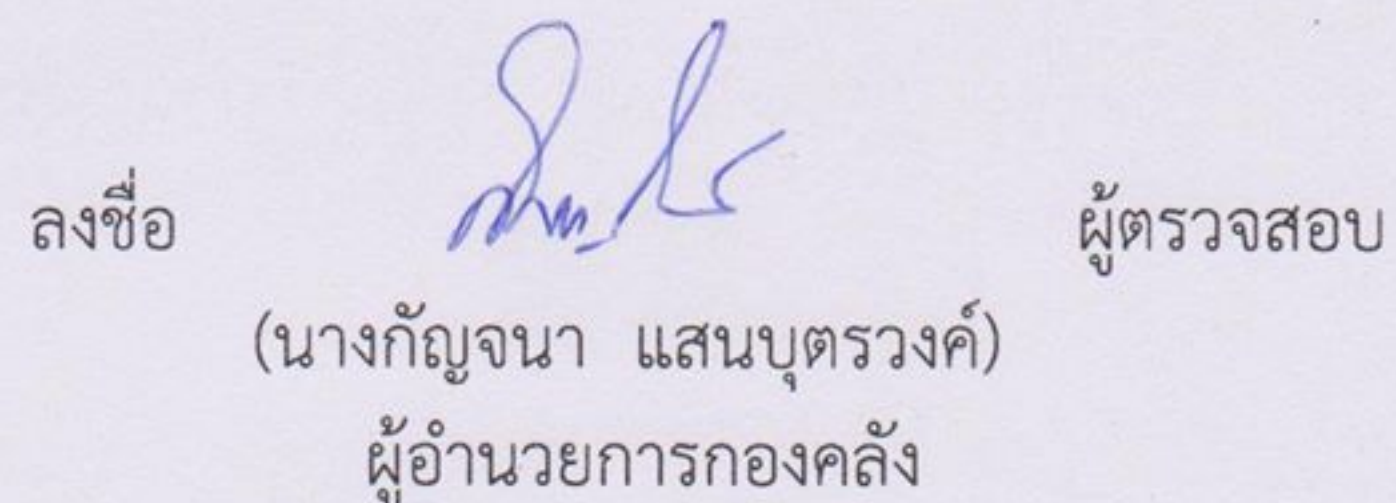 ลงชื่อ ผู้ตรวจสอบ
(นางกัญจนา แสนบุตรวงค์)
ผู้อำนวยการกองคลัง